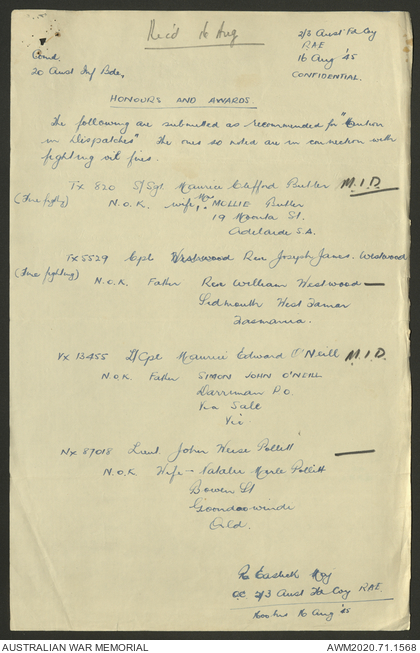 Rec'd 16 Aug
2/3 Aust Fd Coy
RAE
16 Aug '45
CONFIDENTIAL.
Comd.
20 Aust Inf Bde,
HONOURS AND AWARDS
The following are submitted as recommended for "Mention
in Dispatches". The ones so noted are in connection with
fighting oil fires.
Tx 820 S/Sgt. Maurice Clifford Butler M.I.D.
(Fire fighting)
N.O.K. wife, Mrs MOLLIE Butler
19 Moonta St.
Adelaide S.A.
Tx 5529 Cpl Westwood Rex Joseph James. Westwood
(Fire fighting)
N.O.K. Father Rex William Westwood —
Sidmouth West Tamar
Tasmania.
Vx 13455 L/Cpl Maurice Edward O'Neill M.I.D.
N.O.K. Father SIMON JOHN O'NEILL
Darriman P.O.
Via Sale
Vic.
Nx 87018 Lieut. John Weise Pollett —
N.O.K. Wife - Natalie Merle Pollett
Bowen St
Goondoowindi
Qld.
Maj
OC 2/3 Aust Fd Coy RAE
1600 hrs 16 Aug '45
AUSTRALIAN WAR MEMORIAL
AWM2020.71.1568